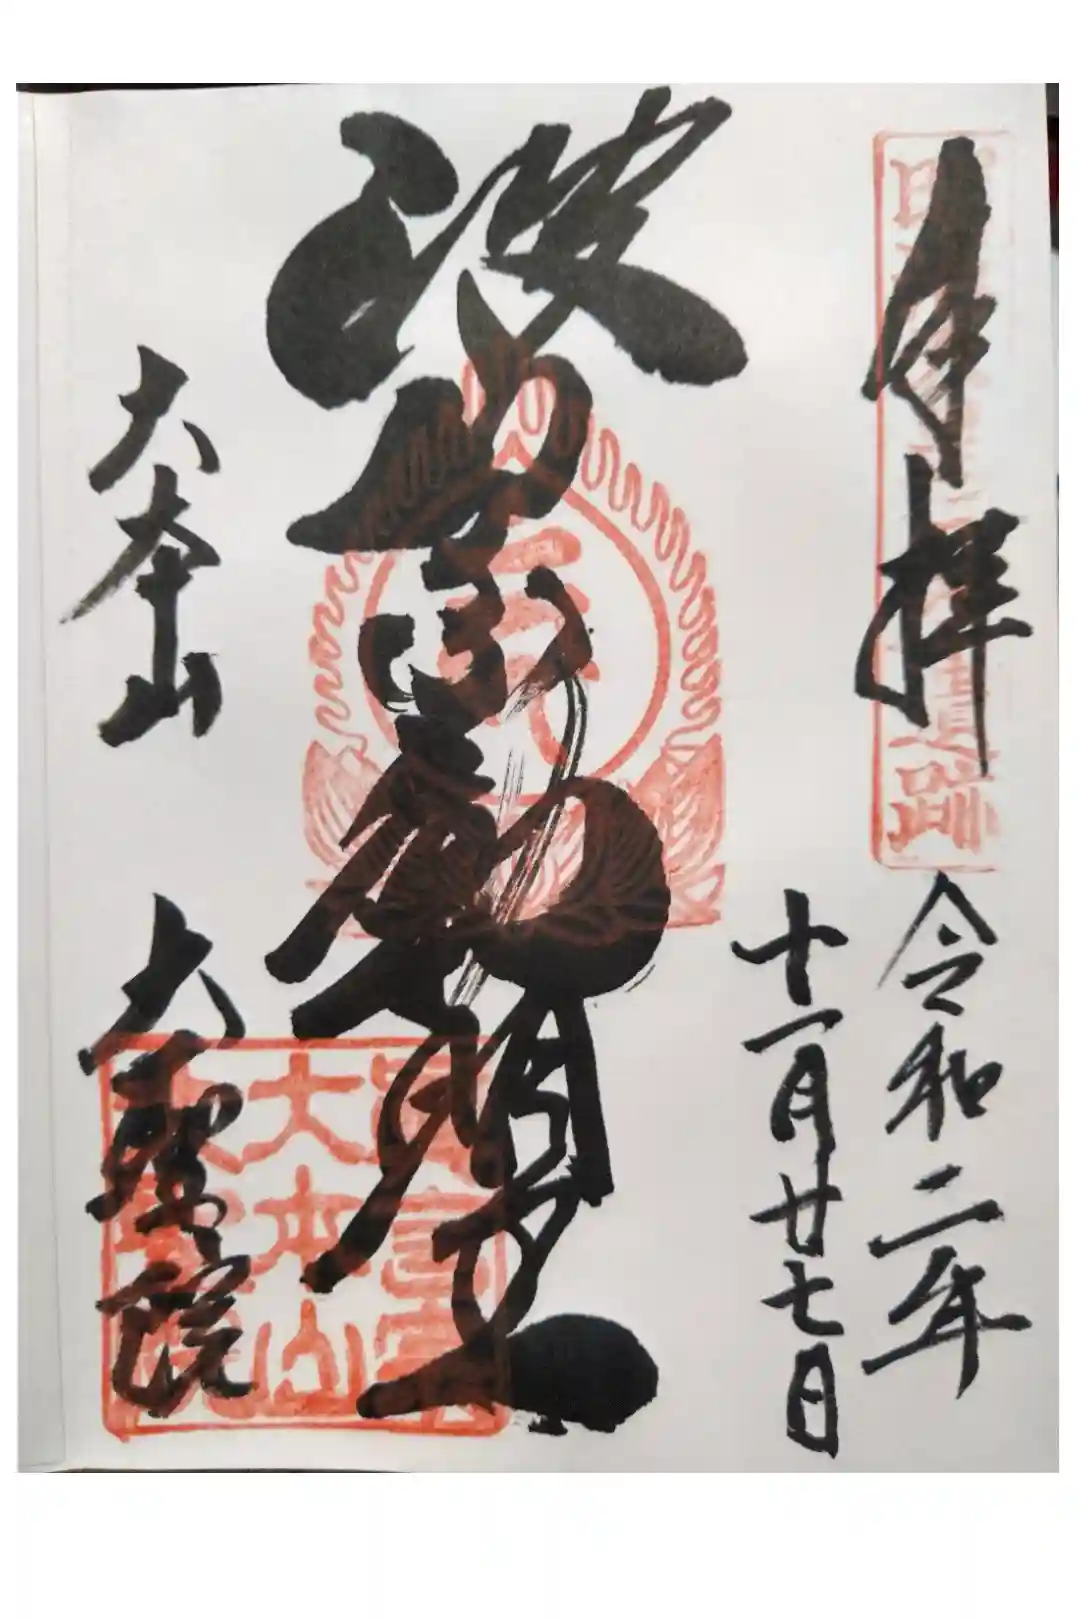 奉拝
令和二年
十一月廿七日
波切不動明王
大本山
大聖院
真言宗
大本山
大聖院